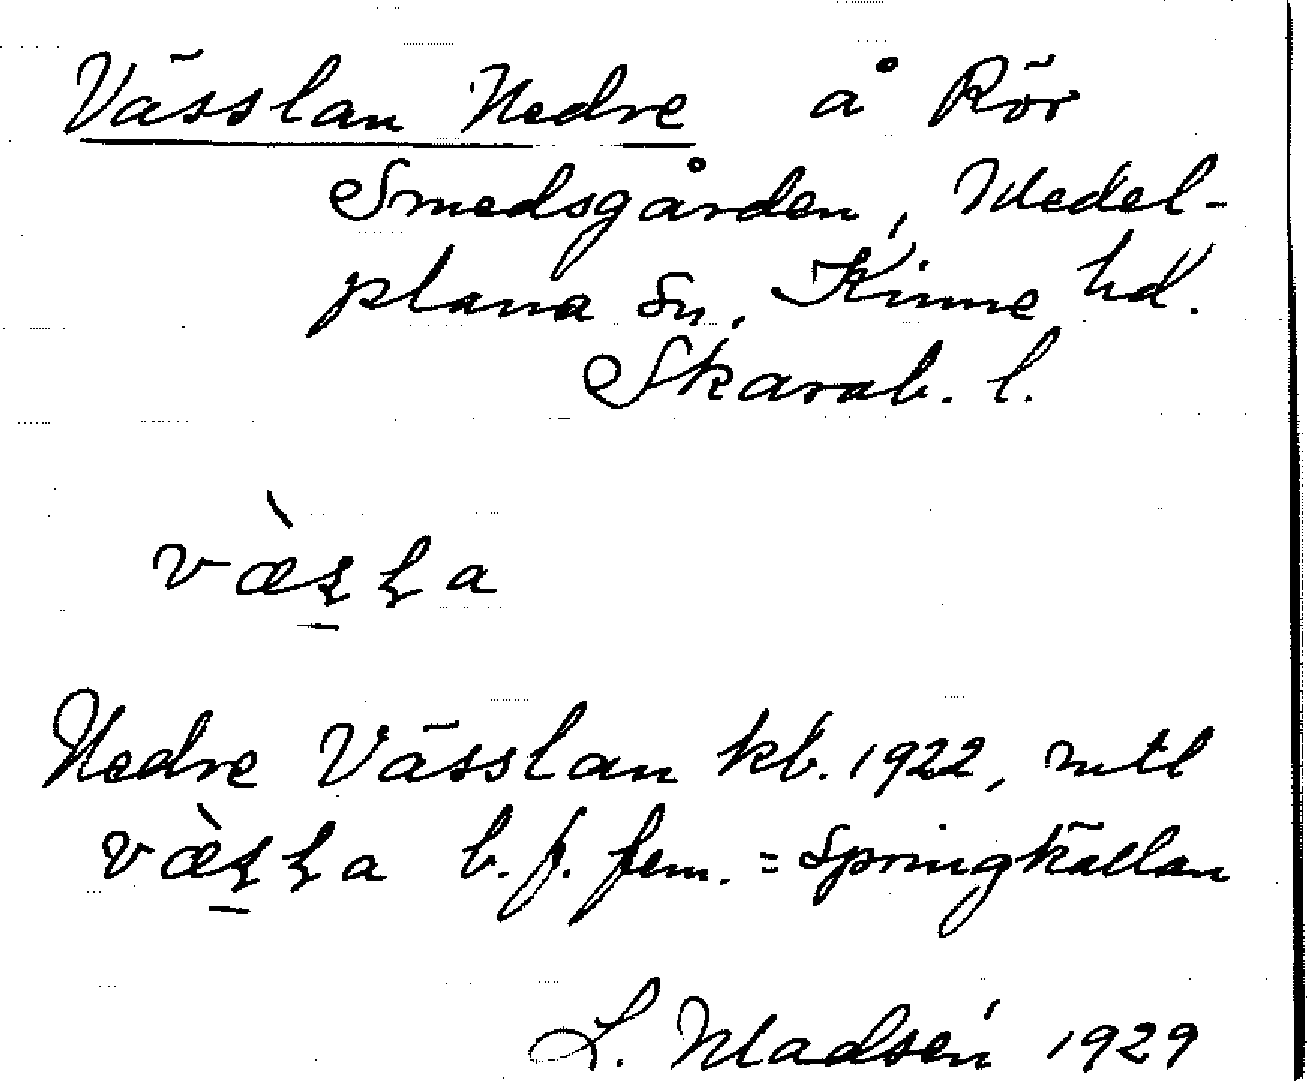 Vässlan Nedre å Rör
Smedsgården, Medel-
plana sn, Kinne hd.
Skarab. l.
Nedre Vässlan kb. 1922, mtl
b. f. fem. = springkällan
L. Madsén 1929